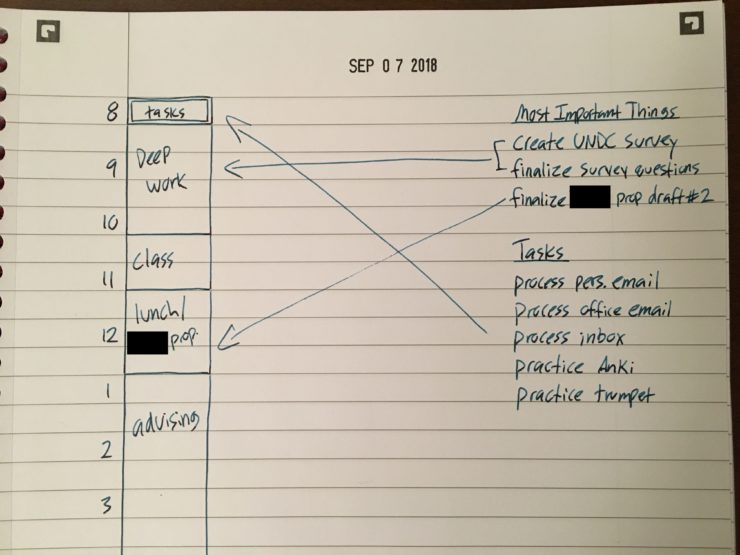 SEP 07 2018
8 tasks
9 Deep
work
10
class
11
lunch/
12 prop.
1
advising
2
3
Most Important Things
Create UNDC survey
finalize survey questions
finalize prop draft #2
Tasks
process pers. email
process office email
process inbox
practice Anki
practice trumpet